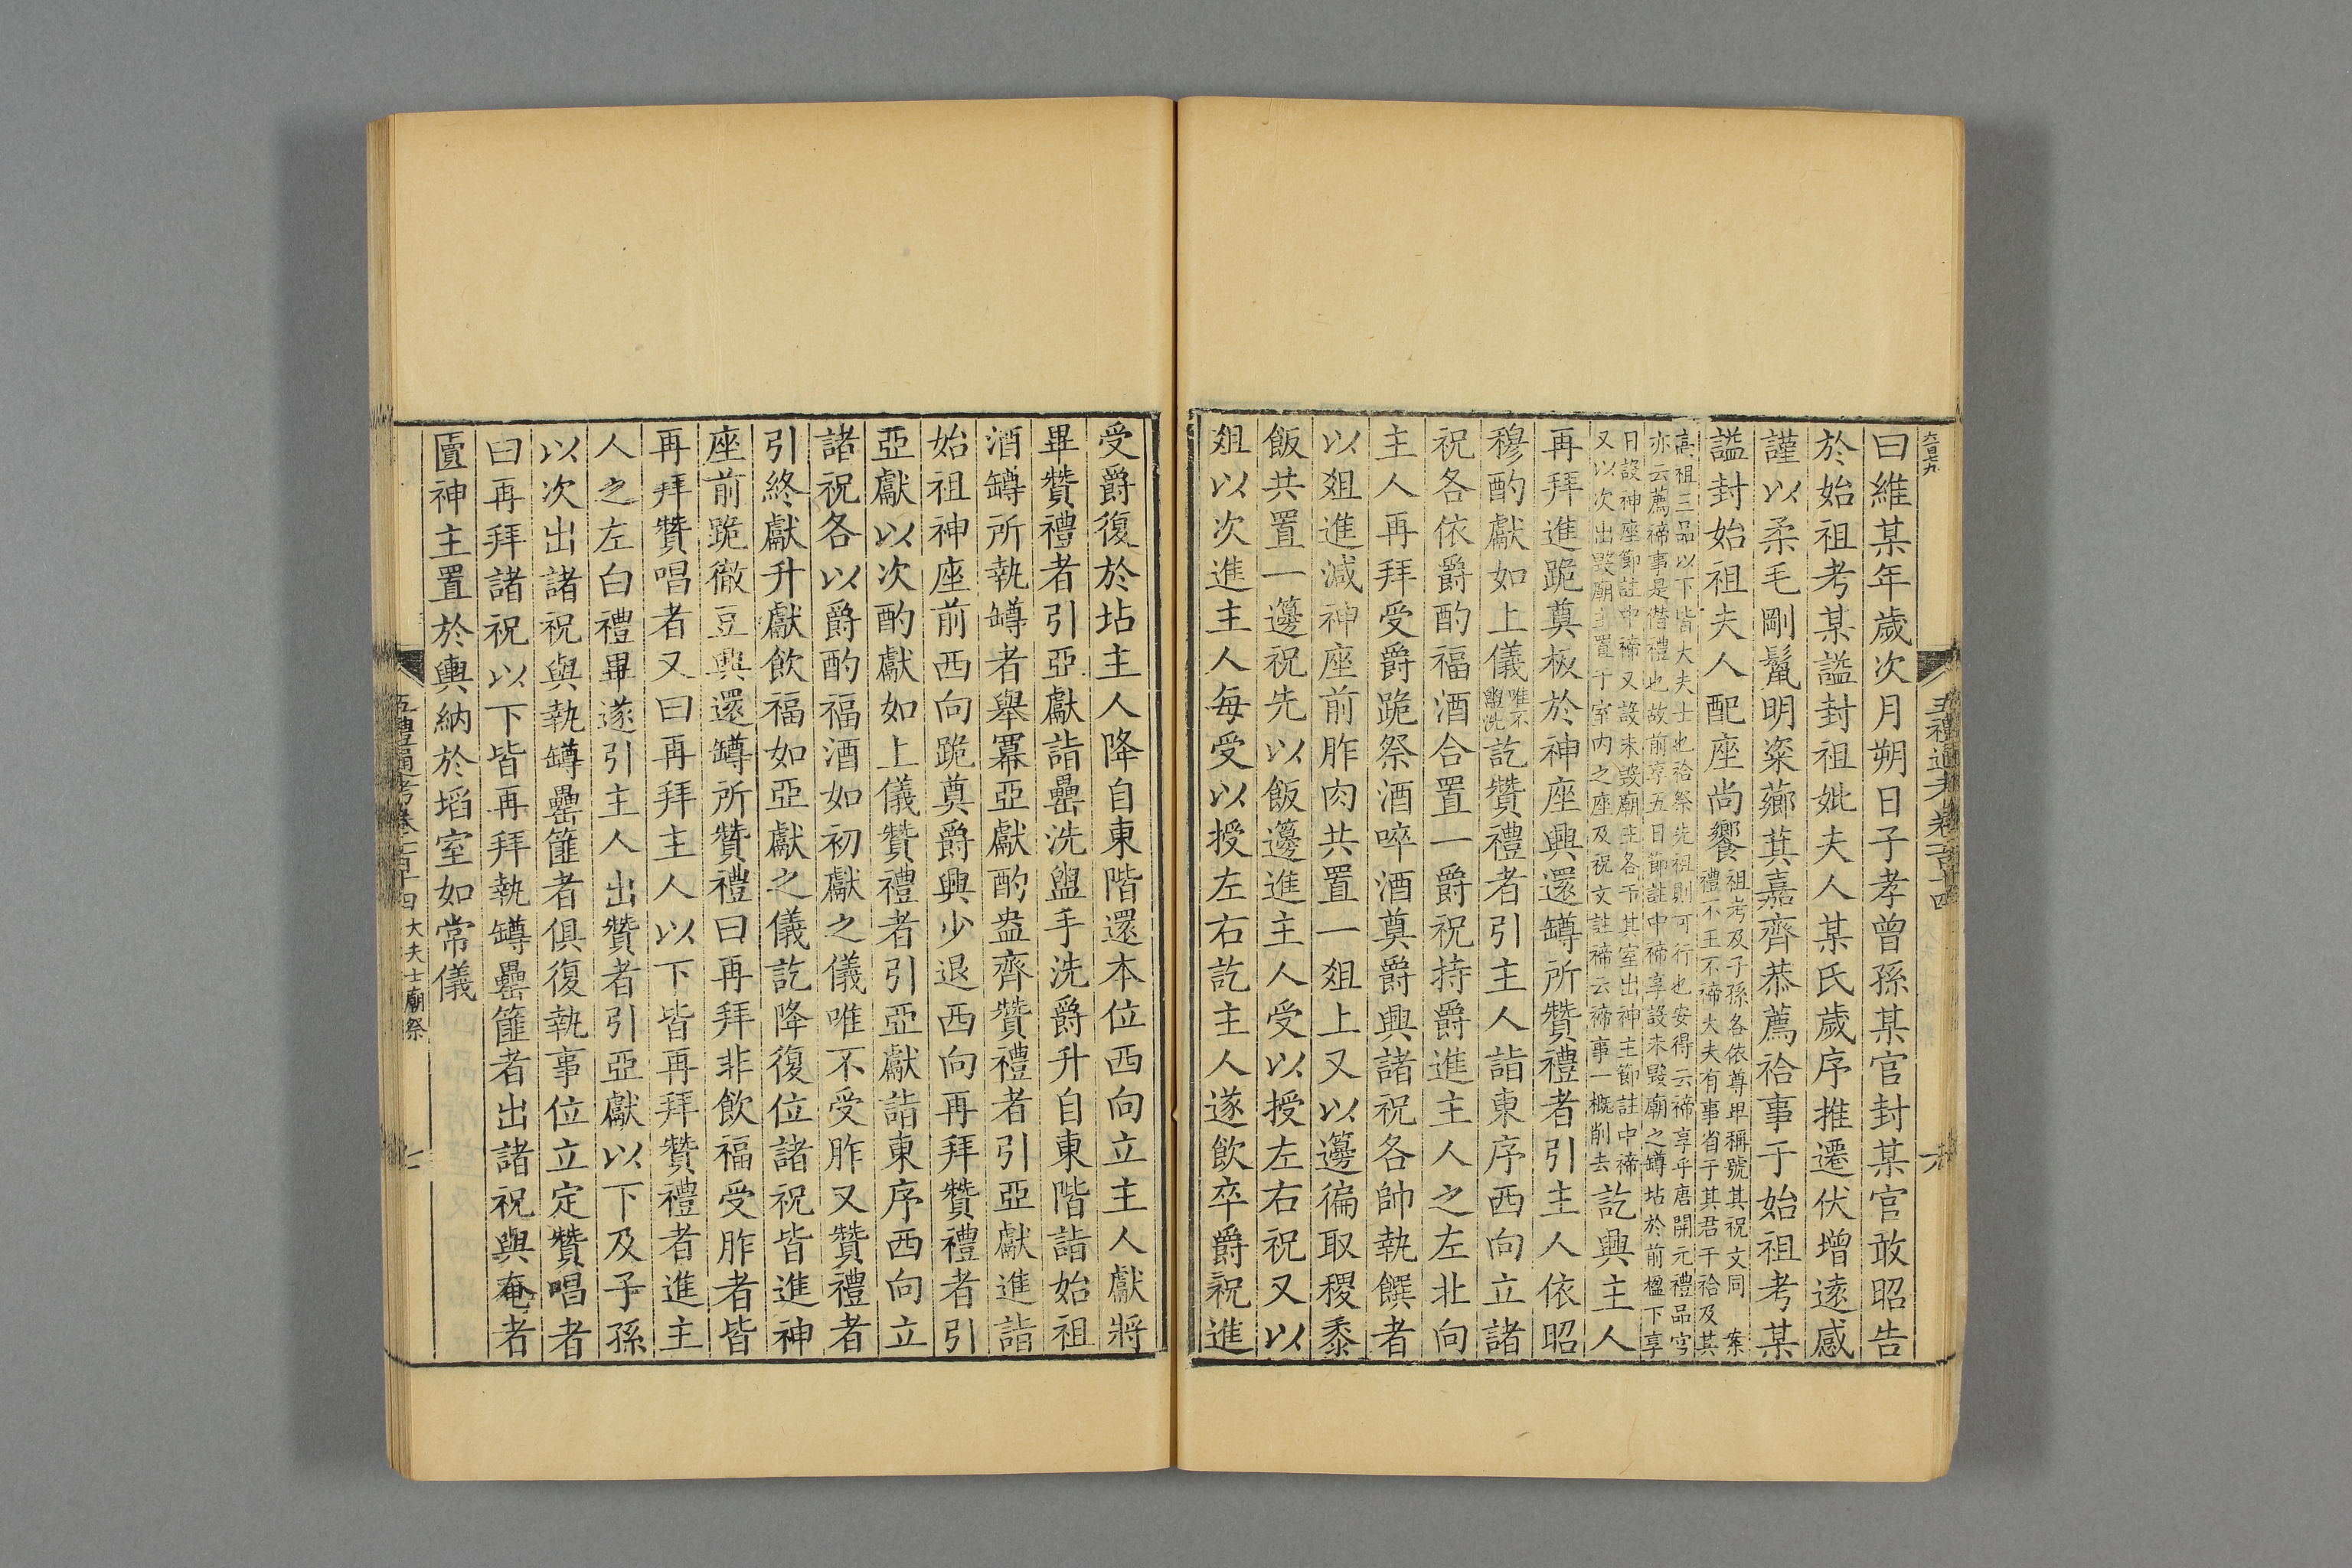 曰維某年歲次月朔日子孝曾孫某官封某官敢昭告
於始祖考某謚封祖妣夫人某氏歲序推遷伏增遠感
謹以柔毛剛鬣明粢薌萁嘉齊恭薦祫事于始祖考某
謚封始祖夫人配座尚饗祖考及子孫各依尊卑稱號其祝文同 案
禮不王不禘大夫有事省于其君干祫及其
高祖三品以下皆大夫士也祫祭先祖則可行也安得云禘享乎唐開元禮品官
亦云薦禘事是僣禮也故前享五日節註中禘享設未毀廟之罇坫於前楹下享
日設神座節註中禘又設未毀廟主各于其室出神主節註中禘
又以次出毀廟主置于室内之座及祝文註禘云禘事一概削去訖興主人
再拜進跪奠板於神座興還罇所贊禮者引主人依昭
穆酌獻如上儀唯不
盥洗訖贊禮者引主人詣東序西向立諸
祝各依爵酌福酒合置一爵祝持爵進主人之左北向
主人再拜受爵跪祭酒啐酒奠爵興諸祝各帥執饌者
以俎進減神座前胙肉共置一俎上又以籩徧取稷黍
飯共置一籩祝先以飯籩進主人受以授左右祝又以
俎以次進主人每受以授左右訖主人遂飲卒爵祝進
五禮通考卷一百十四
六
受爵復於坫主人降自東階還本位西向立主人獻將
畢贊禮者引亞獻詣罍洗盥手洗爵升自東階詣始祖
酒罇所執罇者舉冪亞獻酌盎齊贊禮者引亞獻進詣
始祖神座前西向跪奠爵興少退西向再拜贊禮者引
亞獻以次酌獻如上儀贊禮者引亞獻詣東序西向立
諸祝各以爵酌福酒如初獻之儀唯不受胙又贊禮者
引終獻升獻飲福如亞獻之儀訖降復位諸祝皆進神
座前跪徹豆興還罇所贊禮曰再拜非飲福受胙者皆
再拜贊唱者又曰再拜主人以下皆再拜贊禮者進主
人之左白禮畢遂引主人出贊者引亞獻以下及子孫
以次出諸祝與執罇罍篚者俱復執事位立定贊唱者
曰再拜諸祝以下皆再拜執罇罍篚者出諸祝與奄者
匵神主置於輿納於埳室如常儀
五禮通考卷一百十四 大夫士廟祭
七